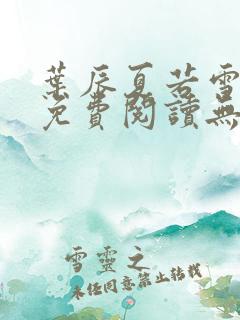 葉辰夏若雪
免費閱讀無
雪靈之
未经同意禁止转载